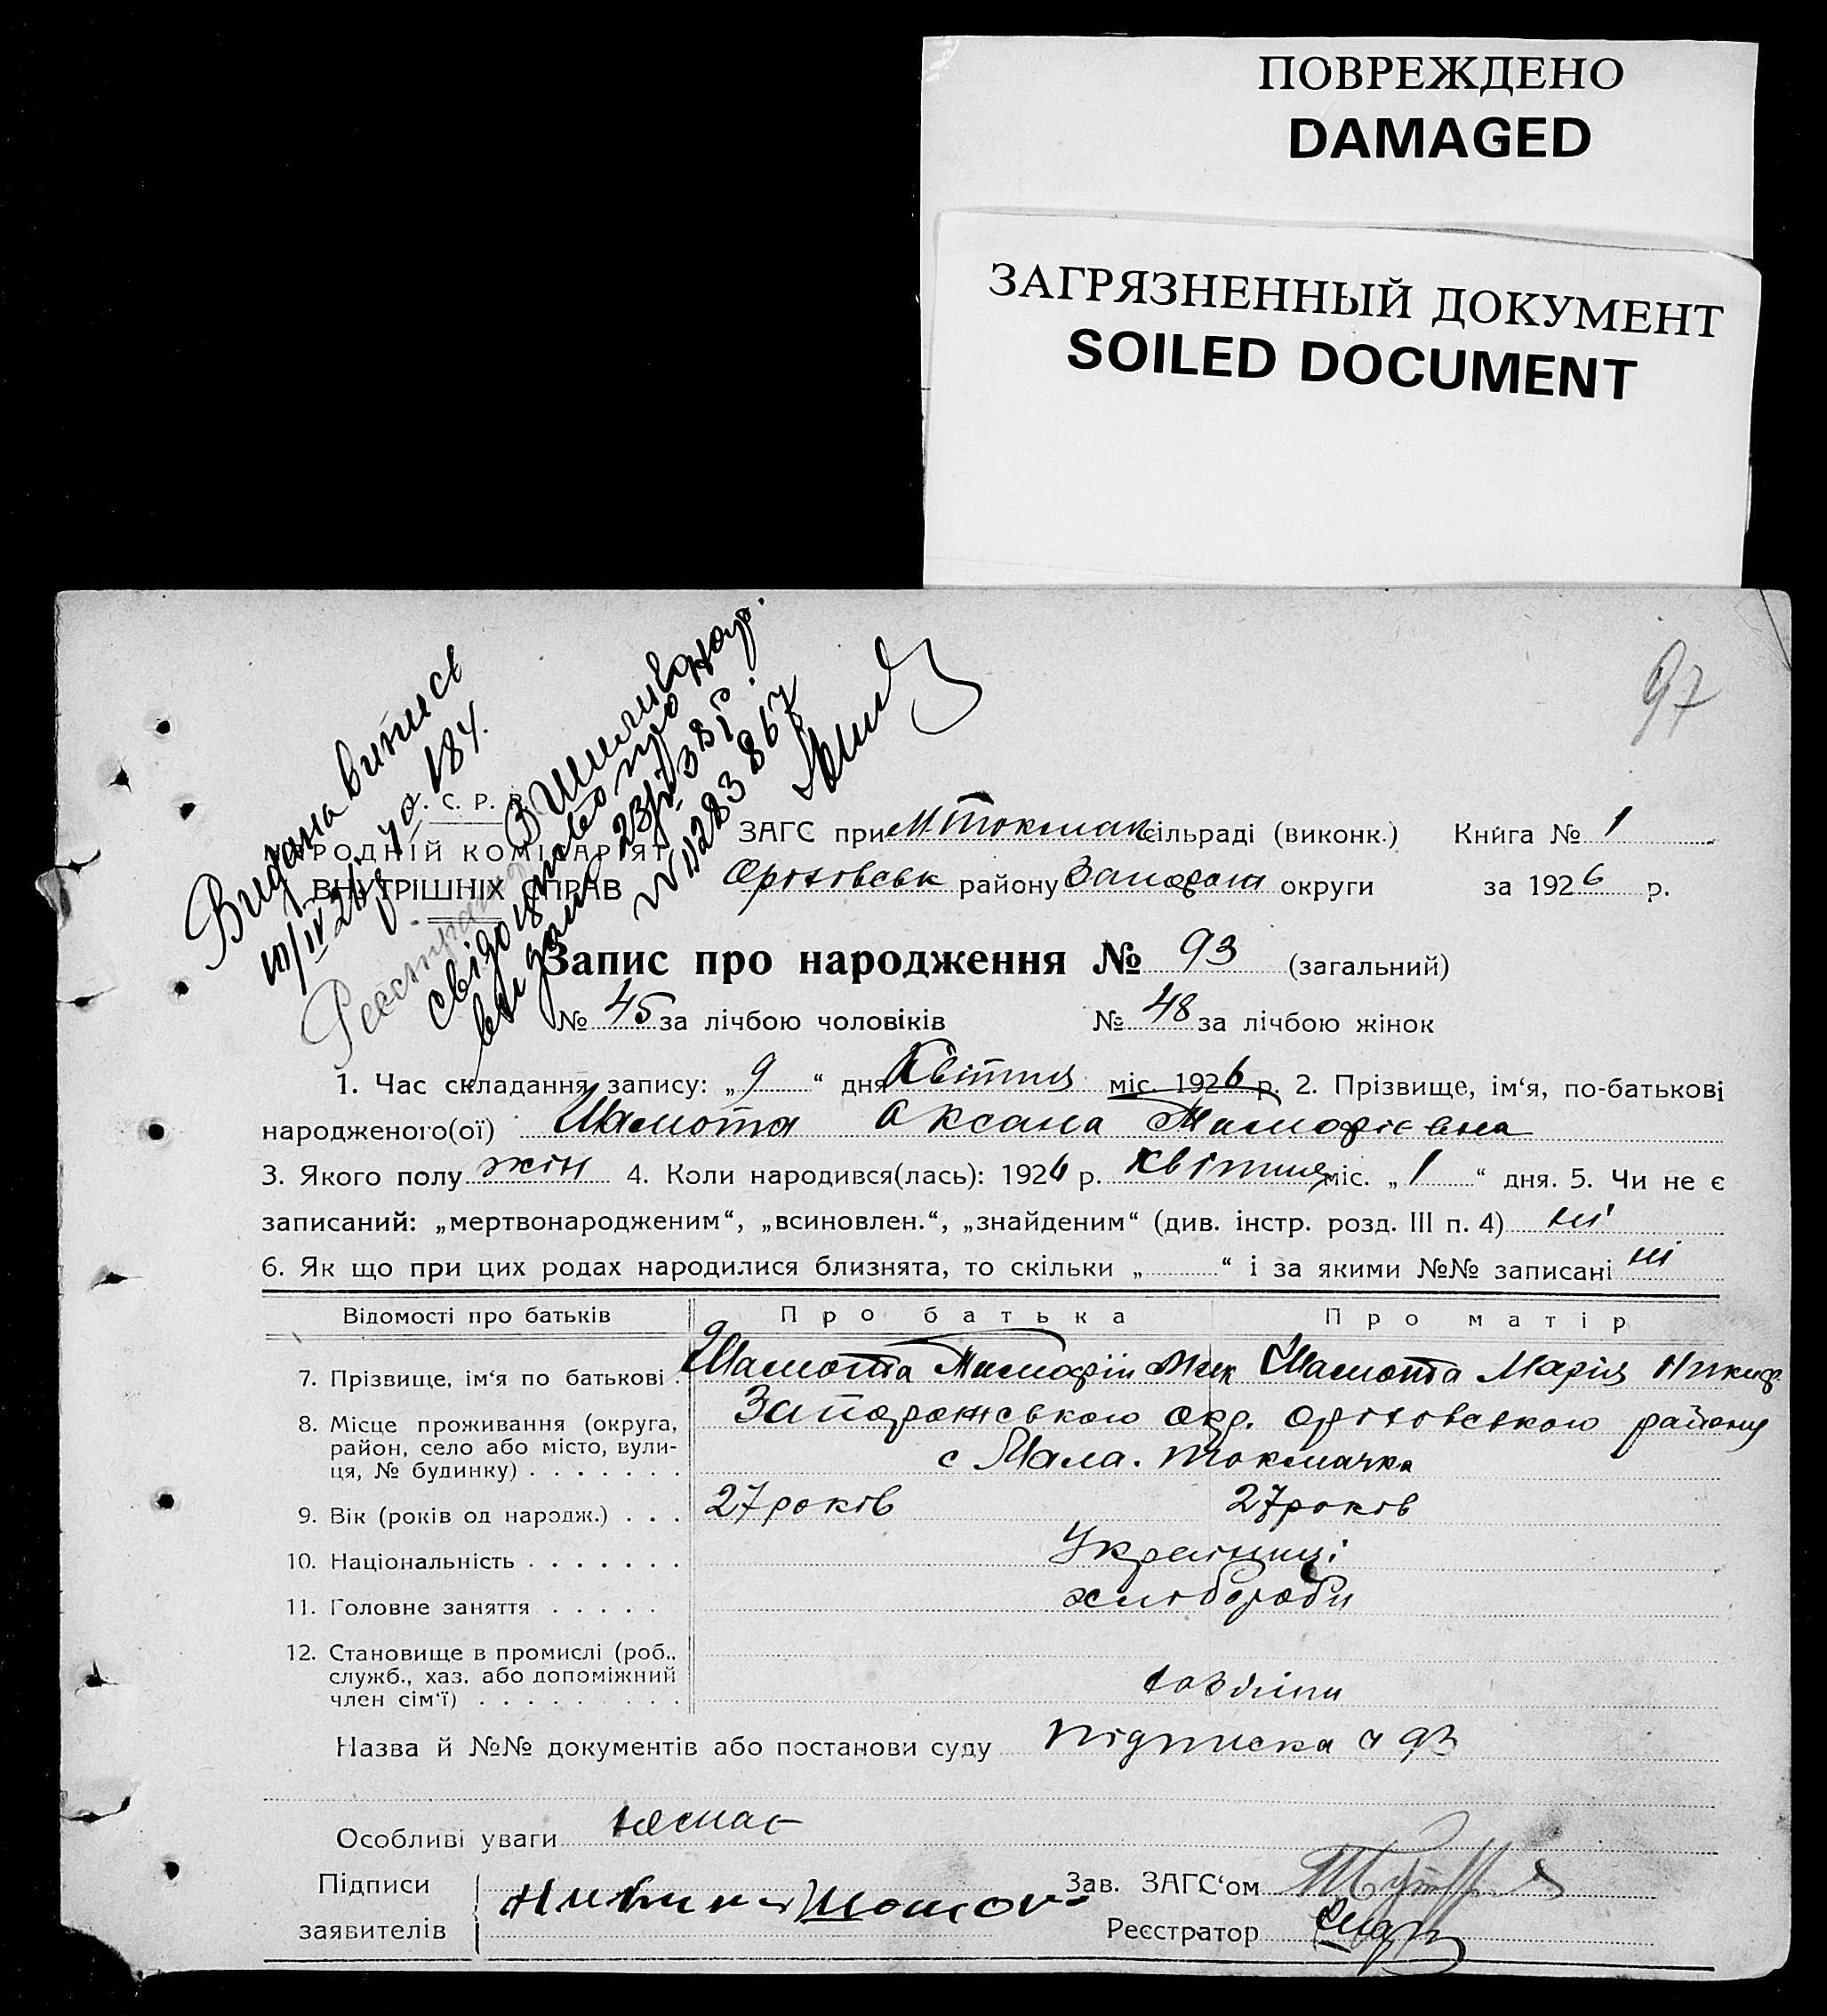 ПОВРЕЖДЕНО
DAMAGED
ЗАГРЯЗНЕННЫЙ ДОКУМЕНТ
SOILED DOCUMENT
97
Видана випись
184.
свідоцтво про нар.
видано 23/
№ 283867
С. Р. Р.
РОДНІЙ КОМІСАРІЯТ
ВНУТРІШНІХ СПРАВ
ЗАГС при М. Токмак сільраді (виконк.) Книга № 1
Оріховськ району Запорож округи за 1926 р.
Запис про народження № 93 (загальний)
№ 45 за лічбою чоловіків № 48 за лічбою жінок
1. Час складання запису: „9“ дня Квітня міс. 1926 р. 2. Прізвище, ім‘я, по-батькові
народженого(ої) Шамота Оксана Тимофієвна
3. Якого полу жін 4. Коли народився(лась): 1926 р. Квітня міс. „1“ дня. 5. Чи не є
записаний: „мертвонародженим“, „всиновлен.“, „знайденим“ (див. інстр. розд. III п. 4) ні
6. Як що при цих родах народилися близнята, то скільки „ “ і за якими №№ записані ні
Відомості про батьків Про батька Про матір
7. Прізвище, ім‘я по батькові . Шамота Тимофій Шамота Марія Никиф.
8. Місце проживання (округа, Запорожського окр. Оріховського району
район, село або місто, вули- с Мала. Токмачка
ця, № будинку) . . . . . . .
9. Вік (років од народж.) . . . 27 років 27 років
10. Національність . . . . . . . Українці
11. Головне заняття . . . . . хлібороби
12. Становище в промислі (роб.,
служб., хаз. або допоміжний
член сім‘ї) . . . . . . . .
Назва й №№ документів або постанови суду підписка ч 93
Особливі уваги немає
Підписи Зав. ЗАГС‘ом
заявителів Реєстратор